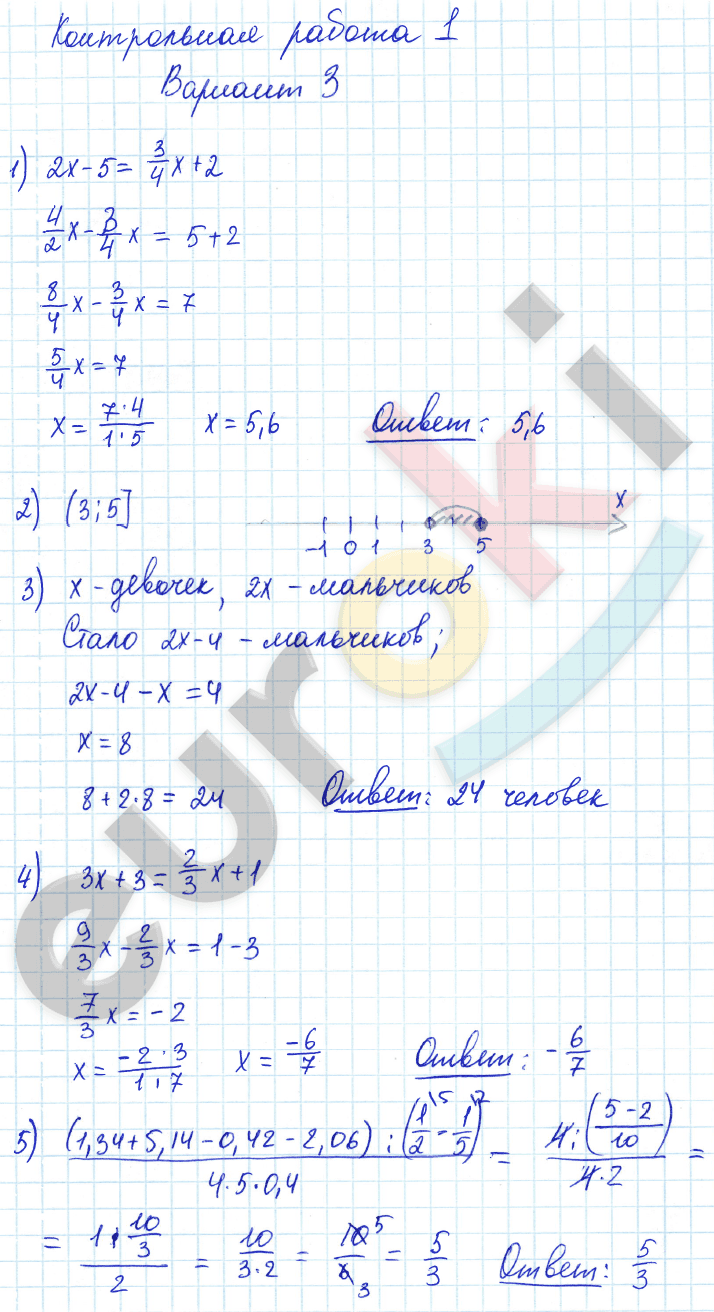 Контрольная работа 1
Вариант 3
1) 2x-5= 3/4x+2
4/2x-3/4x = 5+2
8/4x - 3/4x = 7
5/4x=7
x= 7·4/1·5 x=5,6 Ответ: 5,6
2) (3;5] -1 0 1 3 5 x
3) x - девочек, 2x - мальчиков
Стало 2x-4 - мальчиков;
2x-4-x=4
x=8
8+2·8= 24 Ответ: 24 человек
4) 3x+3= 2/3x+1
9/3x-2/3x=1-3
7/3x=-2
x= -2·3/1·7 x= -6/7 Ответ: -6/7
5) (1,34+5,14-0,42-2,06):(1\5/2-1\2/5)/4·5·0,4 = 4:(5-2/10)/4·2 =
= 1·10/3/2 = 10/3·2 = 10 5/6 3 = 5/3 Ответ: 5/3
euroki